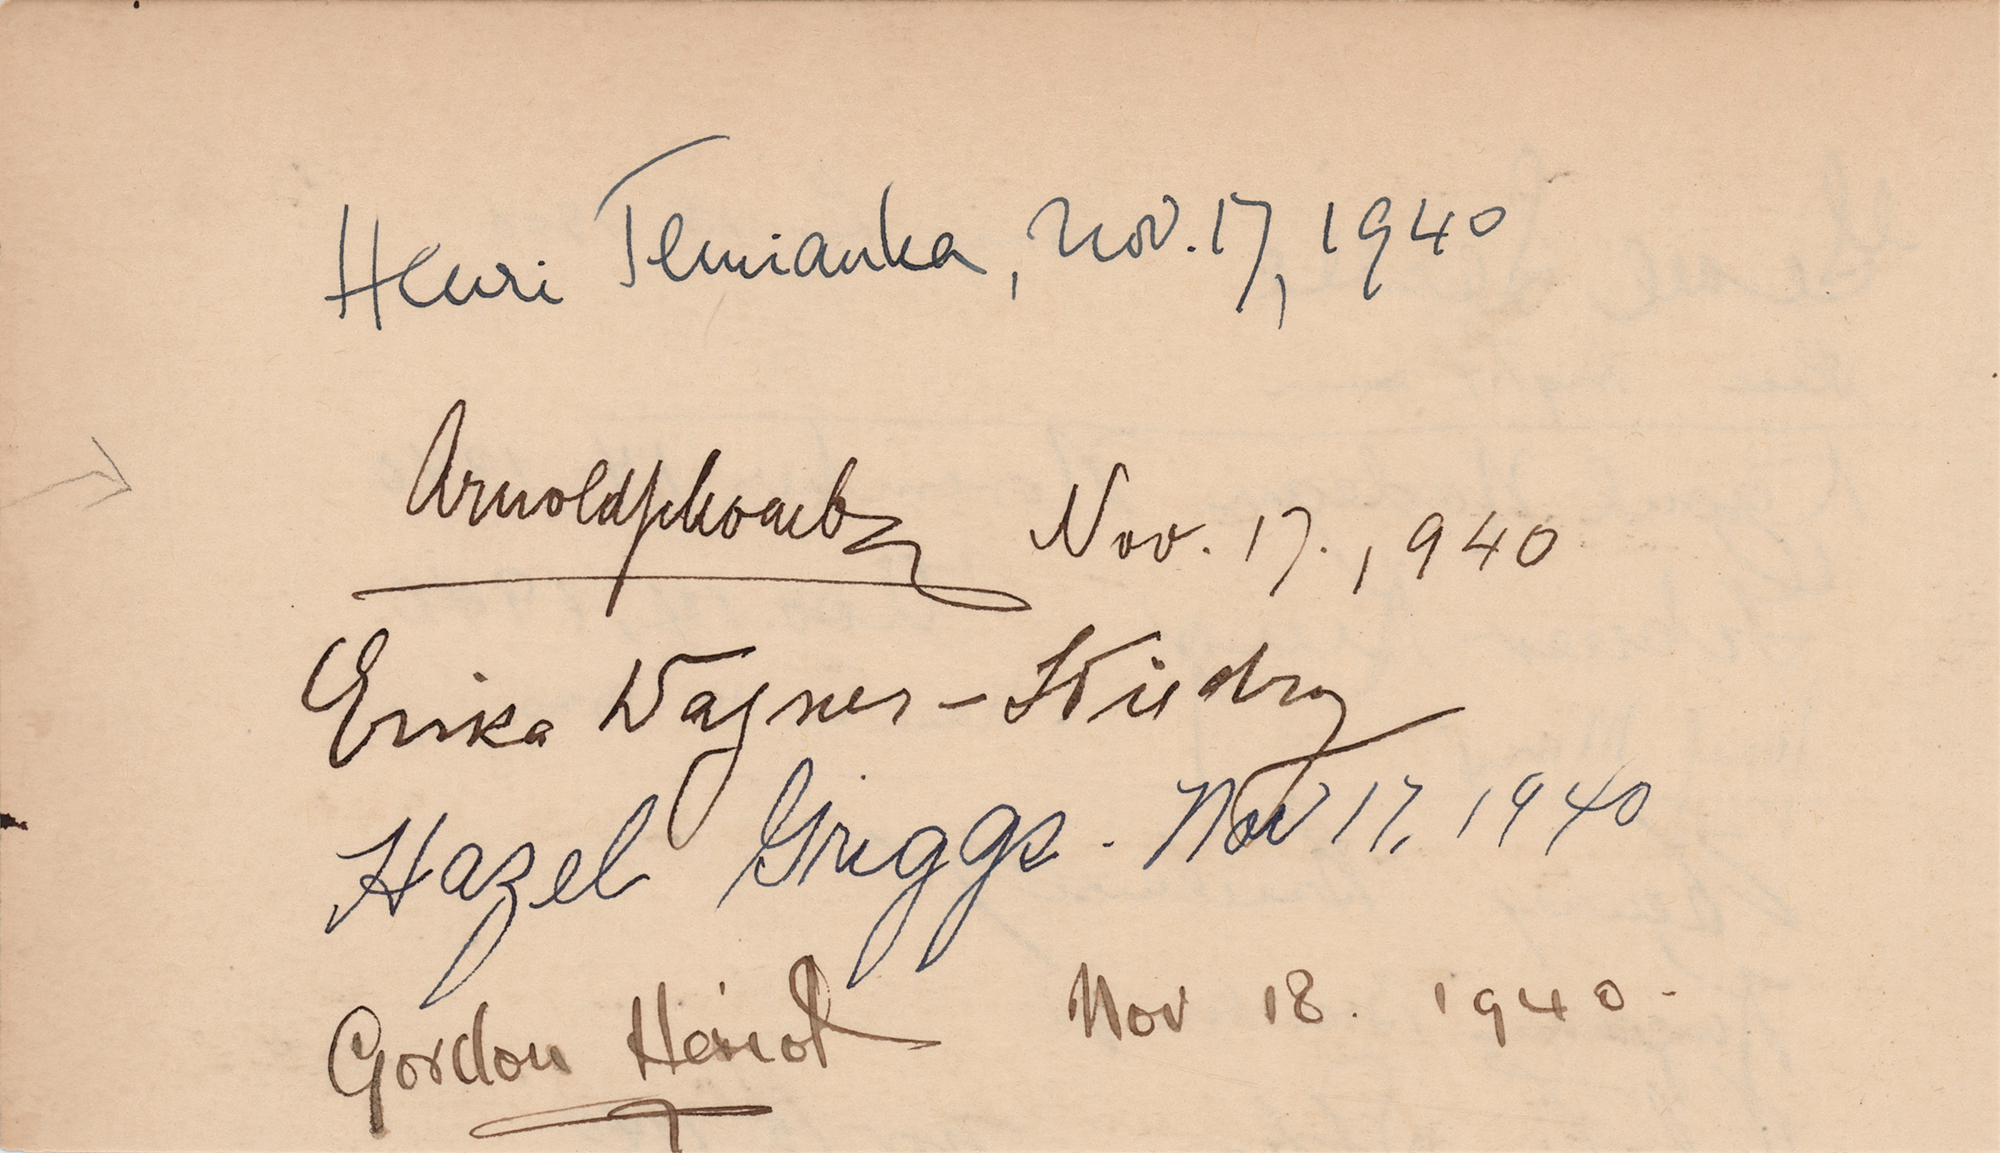 Henri Temianka, Nov. 17, 1940
Arnold Schoenberg Nov. 17., 1940
Erika Wagner-Stiedry
Hazel Griggs. Nov 17, 1940
Gordon Heriot Nov 18. 1940-